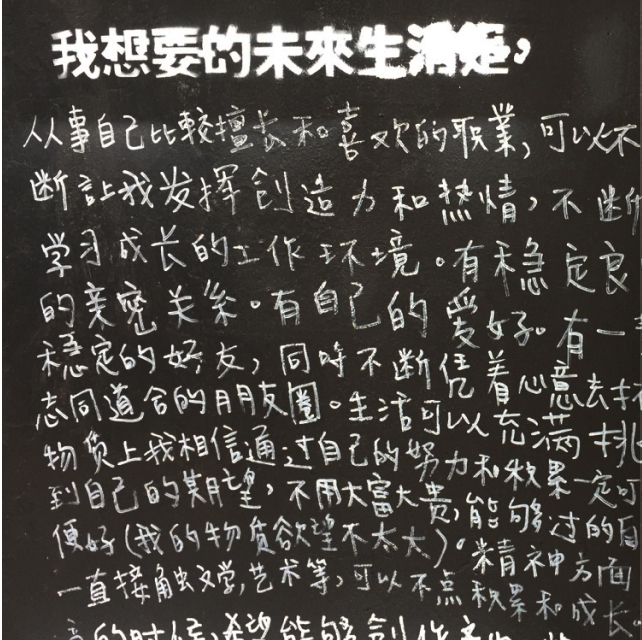 我想要的未來生活是，
从事自己比較擅长和喜欢的职業，可以不
断註我发挥创造力和热情，不断
学习成长的工作环境。有稳定良
的亲密关系。有自己的爱好。有一
稳定的好友，同時不断凭着心意去
志同道合的朋友圈。生活可以充满挑
物质上我相信通过自己的努力和积累一定可
到自己的期望，不用大富大贵，能够过的自
便好（我的物质欲望不太大）。精神方面
一直接触文学，艺术等，可以不点积累和成长
的时候，希望能够创作